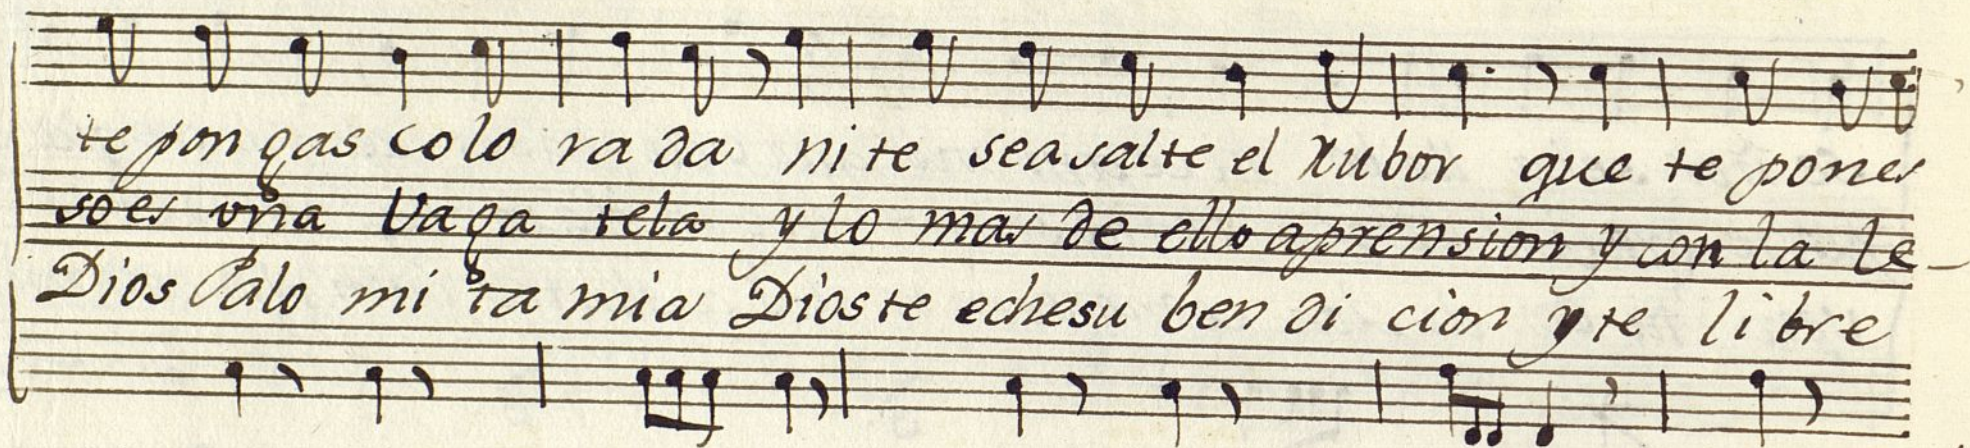 te pon gas colo ra da ni te seasalte el rubor que te pones
so es vna Vaga tela y lo mas de ello aprension y con la le
Dios Palo mi ta mia Dios te echesu ben di cion y te li bre